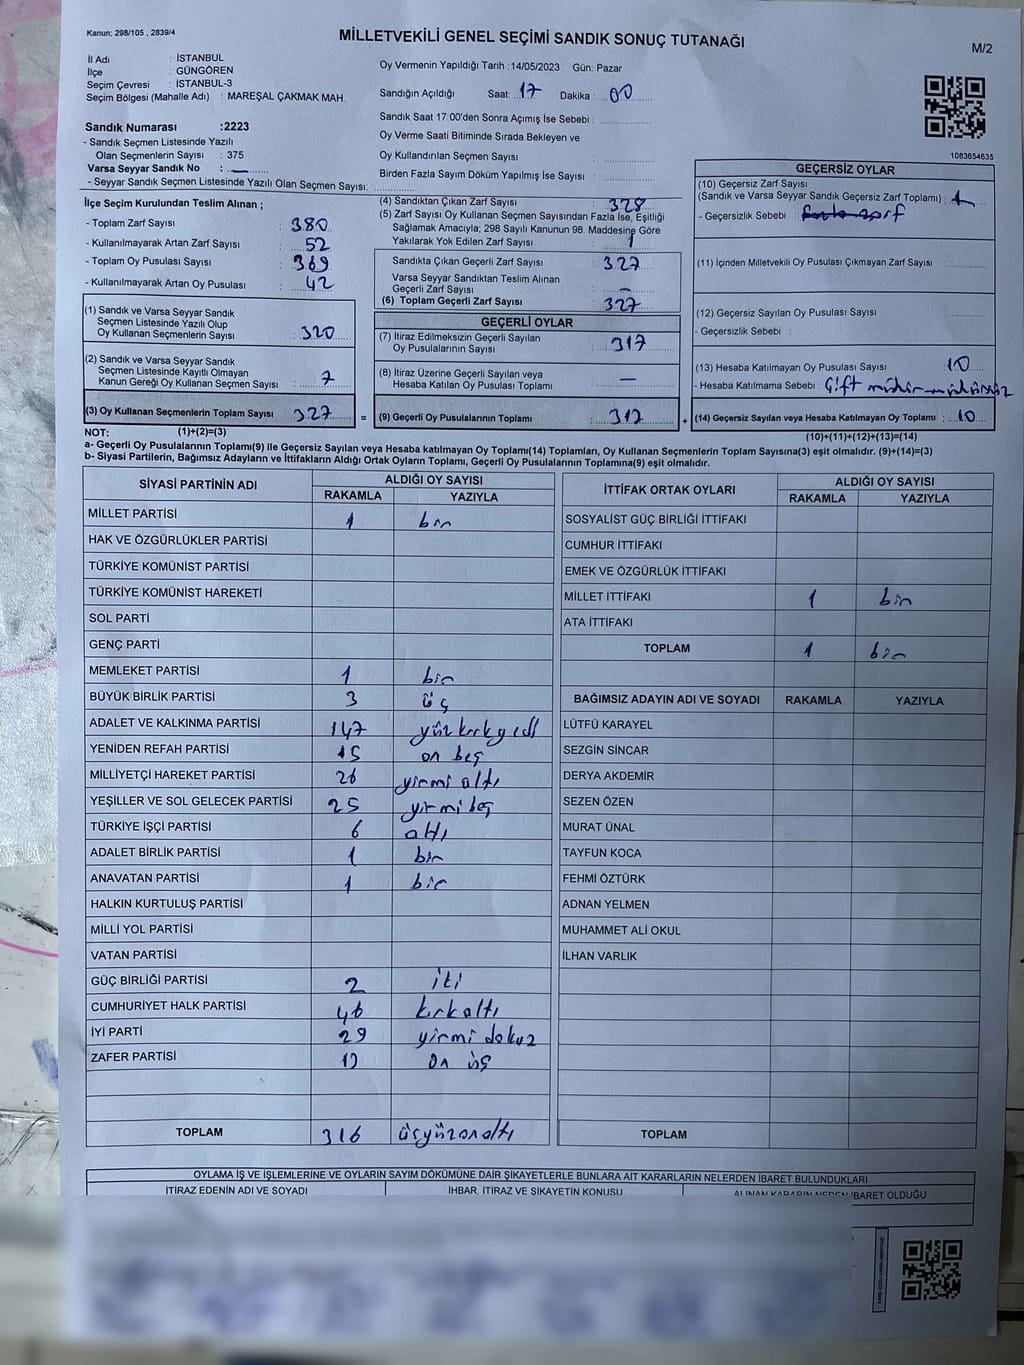 Kanun; 298/105 , 2839/4
MİLLETVEKİLİ GENEL SEÇİMİ SANDIK SONUÇ TUTANAĞI
M/2
İl Adı : İSTANBUL
İlçe : GÜNGÖREN
Seçim Çevresi : İSTANBUL-3
Seçim Bölgesi (Mahalle Adı) : MAREŞAL ÇAKMAK MAH.
Oy Vermenin Yapıldığı Tarih :14/05/2023 Gün: Pazar
Sandığın Açıldığı Saat: 17 Dakika : 00
Sandık Saat 17:00'den Sonra Açımış İse Sebebi :
Oy Verme Saati Bitiminde Sırada Bekleyen ve
Oy Kullandırılan Seçmen Sayısı :
Birden Fazla Sayım Döküm Yapılmış İse Sayısı :
1083654635
Sandık Numarası :2223
- Sandık Seçmen Listesinde Yazılı
Olan Seçmenlerin Sayısı : 375
Varsa Seyyar Sandık No : —
- Seyyar Sandık Seçmen Listesinde Yazılı Olan Seçmen Sayısı:
İlçe Seçim Kurulundan Teslim Alınan ;
- Toplam Zarf Sayısı : 380
- Kullanılmayarak Artan Zarf Sayısı : 52
- Toplam Oy Pusulası Sayısı : 369
- Kullanılmayarak Artan Oy Pusulası : 42
(1) Sandık ve Varsa Seyyar Sandık
Seçmen Listesinde Yazılı Olup
Oy Kullanan Seçmenlerin Sayısı : 320
(2) Sandık ve Varsa Seyyar Sandık
Seçmen Listesinde Kayıtlı Olmayan
Kanun Gereği Oy Kullanan Seçmen Sayısı : 7
(3) Oy Kullanan Seçmenlerin Toplam Sayısı : 327
(1)+(2)=(3)
(4) Sandıktan Çıkan Zarf Sayısı : 328
(5) Zarf Sayısı Oy Kullanan Seçmen Sayısından Fazla İse, Eşitliği
Sağlamak Amacıyla; 298 Sayılı Kanunun 98. Maddesine Göre
Yakılarak Yok Edilen Zarf Sayısı : 1
Sandıkta Çıkan Geçerli Zarf Sayısı : 327
Varsa Seyyar Sandıktan Teslim Alınan
Geçerli Zarf Sayısı : —
(6) Toplam Geçerli Zarf Sayısı : 327
GEÇERLİ OYLAR
(7) İtiraz Edilmeksizin Geçerli Sayılan
Oy Pusulalarının Sayısı : 317
(8) İtiraz Üzerine Geçerli Sayılan veya
Hesaba Katılan Oy Pusulası Toplamı : —
= (9) Geçerli Oy Pusulalarının Toplamı : 317
GEÇERSİZ OYLAR
(10) Geçersiz Zarf Sayısı
(Sandık ve Varsa Seyyar Sandık Geçersiz Zarf Toplamı) :
- Geçersizlik Sebebi :
(11) İçinden Milletvekili Oy Pusulası Çıkmayan Zarf Sayısı :
(12) Geçersiz Sayılan Oy Pusulası Sayısı :
- Geçersizlik Sebebi :
(13) Hesaba Katılmayan Oy Pusulası Sayısı : 10
- Hesaba Katılmama Sebebi : Çift mühür - mühürsüz
+ (14) Geçersiz Sayılan veya Hesaba Katılmayan Oy Toplamı : 10
(10)+(11)+(12)+(13)=(14)
NOT:
a- Geçerli Oy Pusulalarının Toplamı(9) ile Geçersiz Sayılan veya Hesaba katılmayan Oy Toplamı(14) Toplamları, Oy Kullanan Seçmenlerin Toplam Sayısına(3) eşit olmalıdır. (9)+(14)=(3)
b- Siyasi Partilerin, Bağımsız Adayların ve İttifakların Aldığı Ortak Oyların Toplamı, Geçerli Oy Pusulalarının Toplamına(9) eşit olmalıdır.
SİYASİ PARTİNİN ADI ALDIĞI OY SAYISI
RAKAMLA YAZIYLA
MİLLET PARTİSİ 1 bir
HAK VE ÖZGÜRLÜKLER PARTİSİ
TÜRKİYE KOMÜNİST PARTİSİ
TÜRKİYE KOMÜNİST HAREKETİ
SOL PARTİ
GENÇ PARTİ
MEMLEKET PARTİSİ 1 bir
BÜYÜK BİRLİK PARTİSİ 3 üç
ADALET VE KALKINMA PARTİSİ 147 yüzkırkyedi
YENİDEN REFAH PARTİSİ 15 on beş
MİLLİYETÇİ HAREKET PARTİSİ 26 yirmi altı
YEŞİLLER VE SOL GELECEK PARTİSİ 25 yirmi beş
TÜRKİYE İŞÇİ PARTİSİ 6 altı
ADALET BİRLİK PARTİSİ 1 bir
ANAVATAN PARTİSİ 1 bir
HALKIN KURTULUŞ PARTİSİ
MİLLİ YOL PARTİSİ
VATAN PARTİSİ
GÜÇ BİRLİĞİ PARTİSİ 2 iki
CUMHURİYET HALK PARTİSİ 46 kırkaltı
İYİ PARTİ 29 yirmi dokuz
ZAFER PARTİSİ 13 on üç
TOPLAM 316 üçyüzonaltı
İTTİFAK ORTAK OYLARI ALDIĞI OY SAYISI
RAKAMLA YAZIYLA
SOSYALİST GÜÇ BİRLİĞİ İTTİFAKI
CUMHUR İTTİFAKI
EMEK VE ÖZGÜRLÜK İTTİFAKI
MİLLET İTTİFAKI 1 bir
ATA İTTİFAKI
TOPLAM 1 bir
BAĞIMSIZ ADAYIN ADI VE SOYADI RAKAMLA YAZIYLA
LÜTFÜ KARAYEL
SEZGİN SİNCAR
DERYA AKDEMİR
SEZEN ÖZEN
MURAT ÜNAL
TAYFUN KOCA
FEHMİ ÖZTÜRK
ADNAN YELMEN
MUHAMMET ALİ OKUL
İLHAN VARLIK
TOPLAM
OYLAMA İŞ VE İŞLEMLERİNE VE OYLARIN SAYIM DÖKÜMÜNE DAİR ŞİKAYETLERLE BUNLARA AİT KARARLARIN NELERDEN İBARET BULUNDUKLARI
İTİRAZ EDENİN ADI VE SOYADI İHBAR, İTİRAZ VE ŞİKAYETİN KONUSU ALINAN KARARIN NEDEN İBARET OLDUĞU